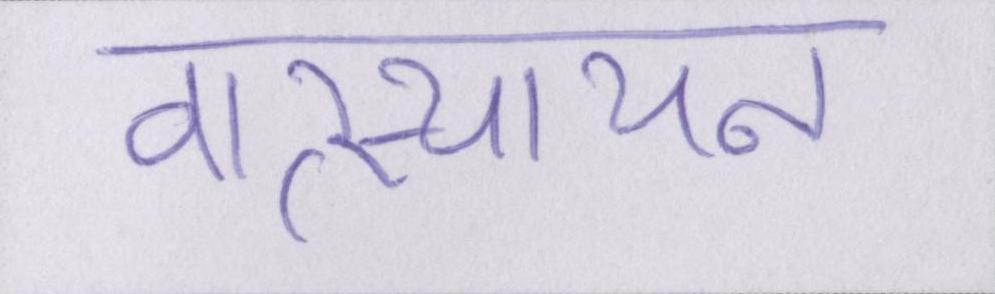 वात्स्यायन